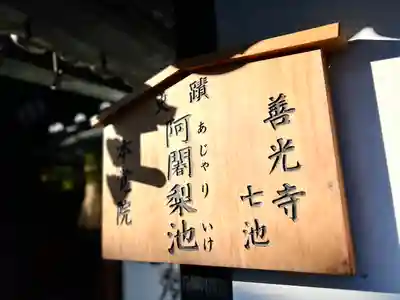 善光寺
七池
蹟 阿闍梨池
あじゃり いけ
本覚院